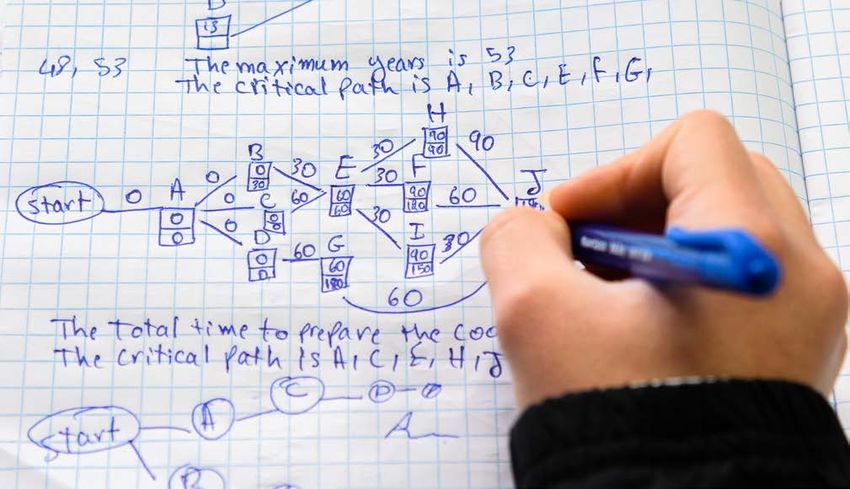 D
13
48, 53 The maximum years is 53
The critical path is A, B, C, E, F, G,
H
90
90
90
B
0
30
30
30
E
60
60
F
90
180
30
60
J
start
0
A
0
0
0
0
0
C
0
0
60
30
I
90
150
30
D
0
0
60
G
60
180
60
The total time to prepare the
The critical path is A, C, E, H, J
start
A
C
D
B